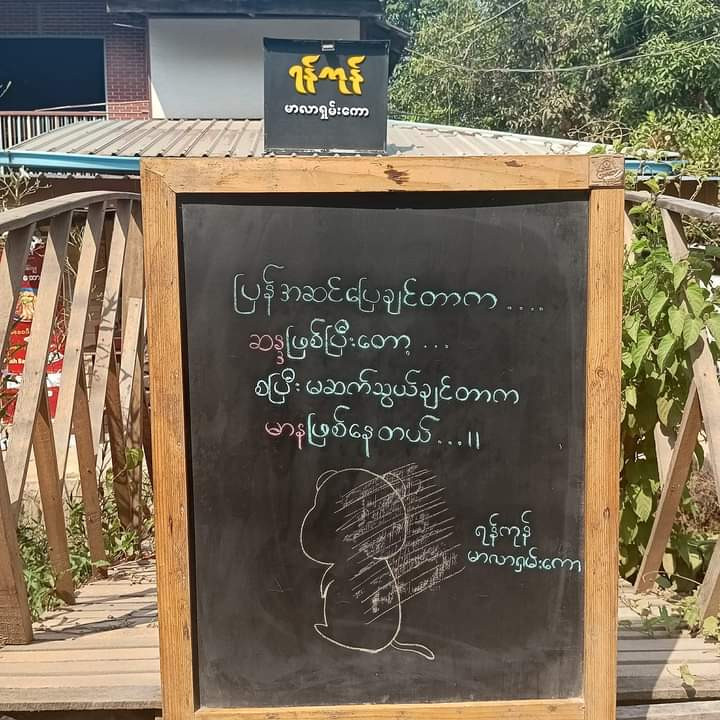 ရန်ကုန်
မာလာရှမ်းကော
ပြန်အဆင်ပြေချင်တာက ....
ဆန္ဒဖြစ်ပြီးတော့ ...
စပြီး မဆက်သွယ်ချင်တာက
မာနဖြစ်နေတယ် ...။
ရန်ကုန်
မာလာရှမ်းကော